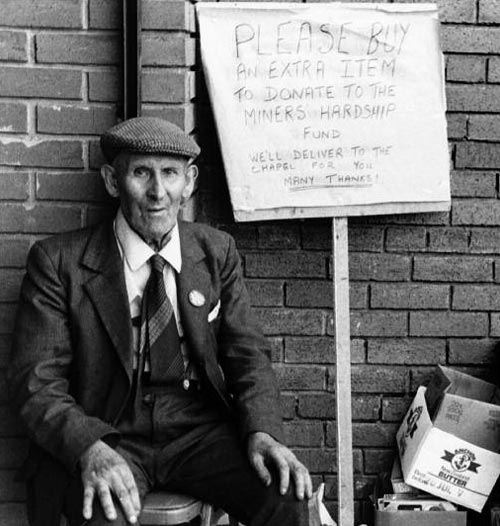 PLEASE BUY
AN EXTRA ITEM
TO DONATE TO THE
MINERS' HARDSHIP
FUND
WE'LL DELIVER TO THE
CHAPEL FOR YOU
MANY THANKS!
ANCHOR
BUTTER